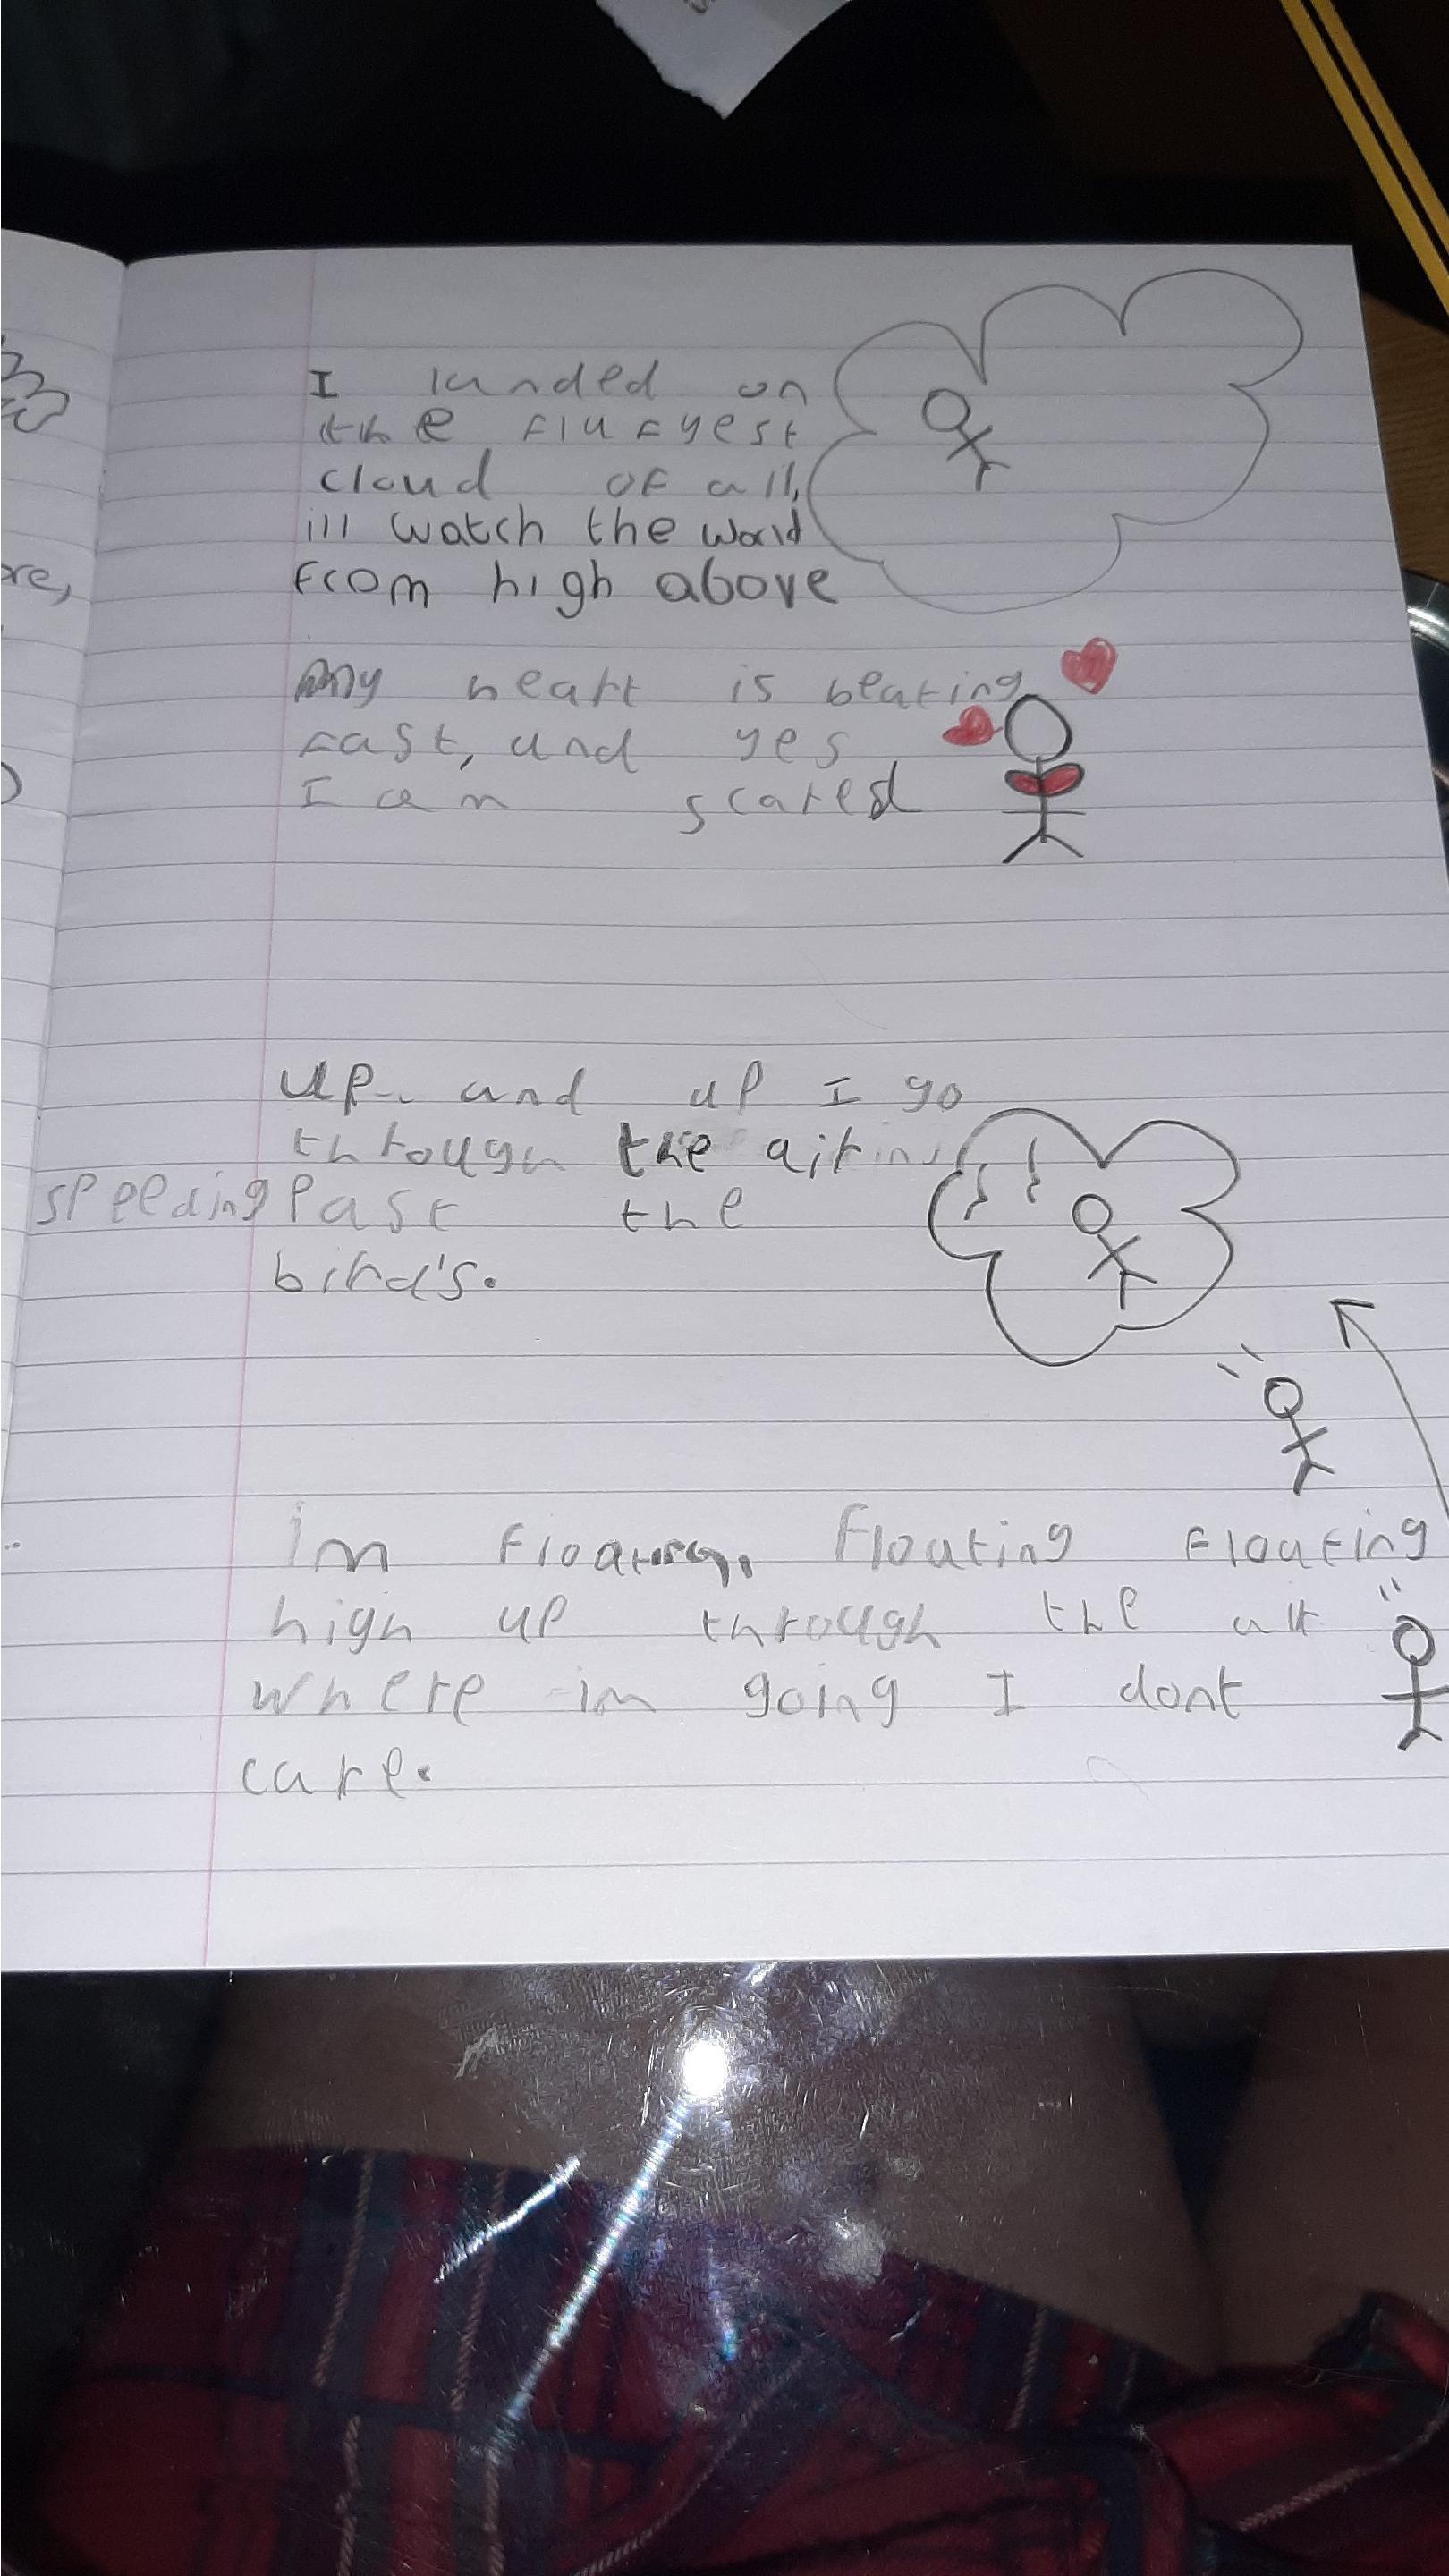 I landed on
the flufyest
cloud of all,
ill watch the world
from high above
my heart is beating
fast, and yes
I am scared
up and up I go
through the air
speeding past the
bird's.
im floating, floating floating
high up through the air
where im going I dont
care.